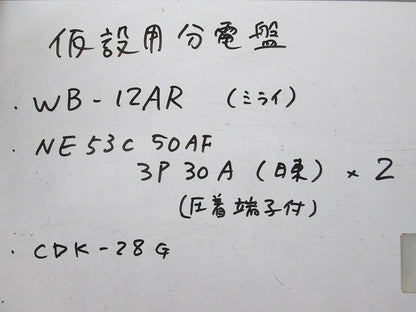 仮設用分電盤
・WB-12AR (ミライ)
・NE53C 50AF
3P 30A (日東) × 2
(圧着端子付)
・CDK-28G